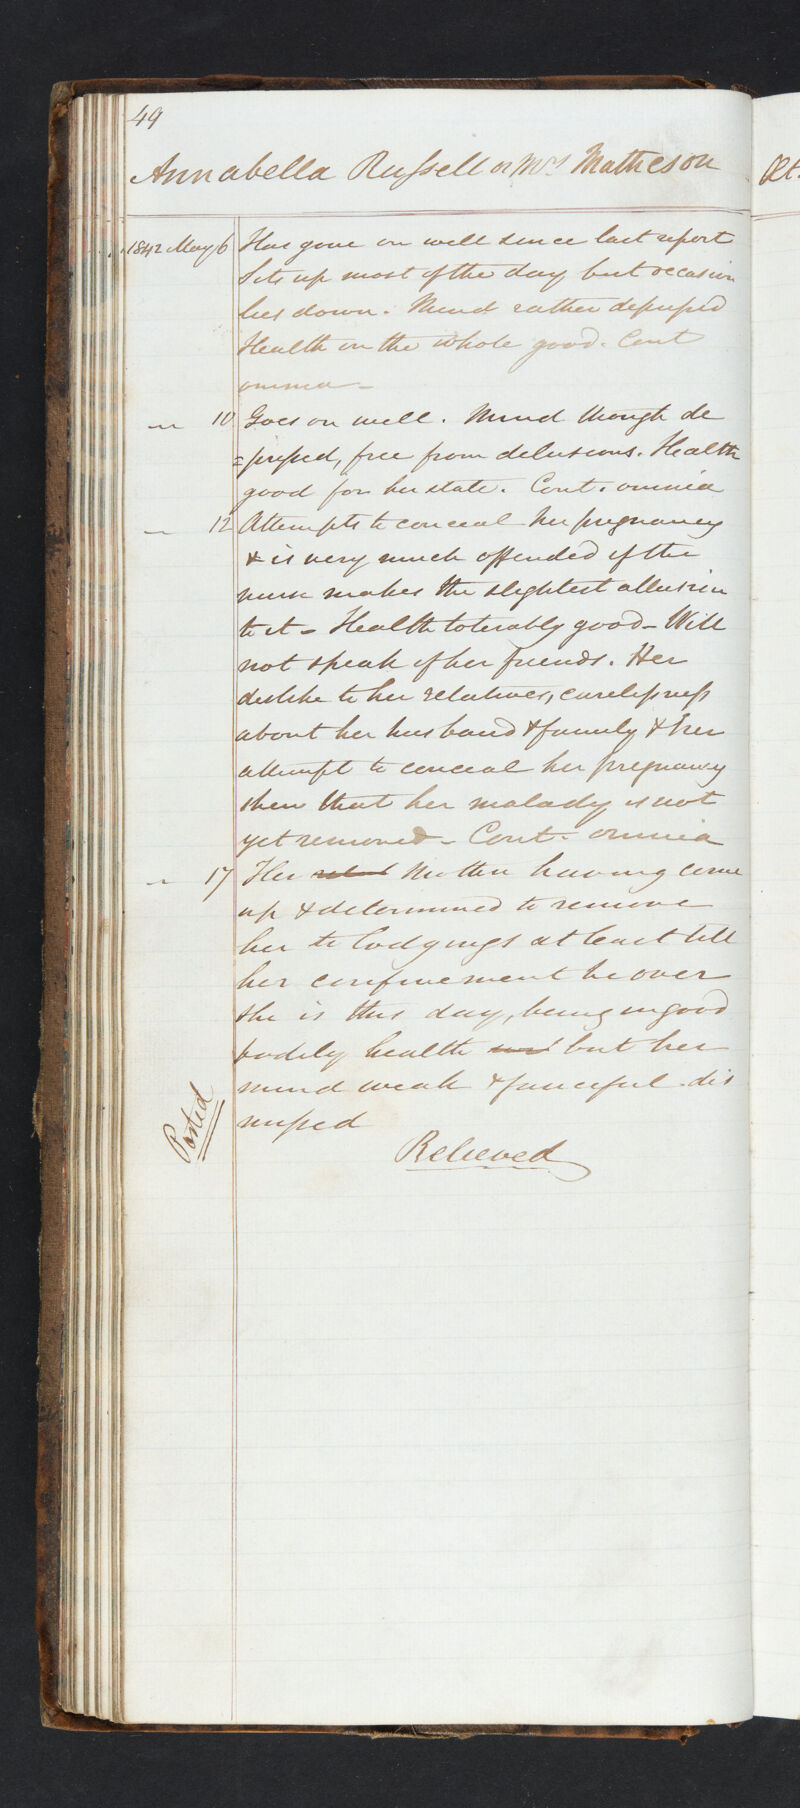 49
Annabella Russell or Mrs Matheson
Æt.
1842 May 6 Has gone on well since last report
Sits up most of the day but occasion
lies down. Mind rather depressed
Health on the whole good. Cont
omnia -
— 10 Goes on well. Mind though de
=pressed, free from delusions. Health
good for her state. Cont. omnia
— 12 Attempts to conceal her pregnancy
& is very much offended if the
nurse makes the slightest allusion
to it - Health tolerably good - Will
not speak of her friends. Her
dislike to her relatives, carelessness
about her husband & family & her
attempt to conceal her pregnancy
shew that her malady is not
yet removed - Cont. omnia
— 17 Her Mother having come
up & determined to remove
her to lodgings at least till
her confinement be over
she is this day, being in good
bodily health but her
mind weak & fanciful dis
missed
Relieved
Posted